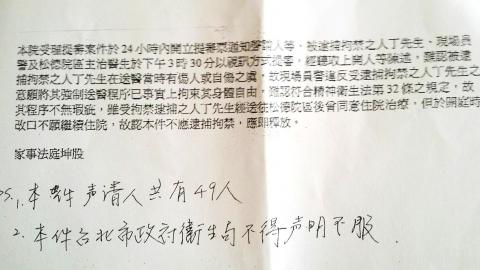 本院受理提審案件於24小時內開立提審票通知聲請人等、被逮捕拘禁之人丁先生、現場員
警及松德院區主治醫生於下午3時30分以視訊方式提審,經聽取上開人等陳述,難認被逮
捕拘禁之人丁先生在送醫當時有傷人或自傷之虞,故現場員警違反受逮捕拘禁之人丁先生之
意願將其強制送醫程序已事實上拘束其身體自由,難認符合精神衛生法第32條之規定,故
其程序不無瑕疵,雖受拘禁逮捕之人丁先生經送往松德院區後曾同意住院治療,但於開庭時
改口不願繼續住院,故認本件不應逮捕拘禁,應即釋放。
家事法庭坤股
PS. 1. 本件声请人共有49人
2. 本件台北市政府衛生局不得声明不服.